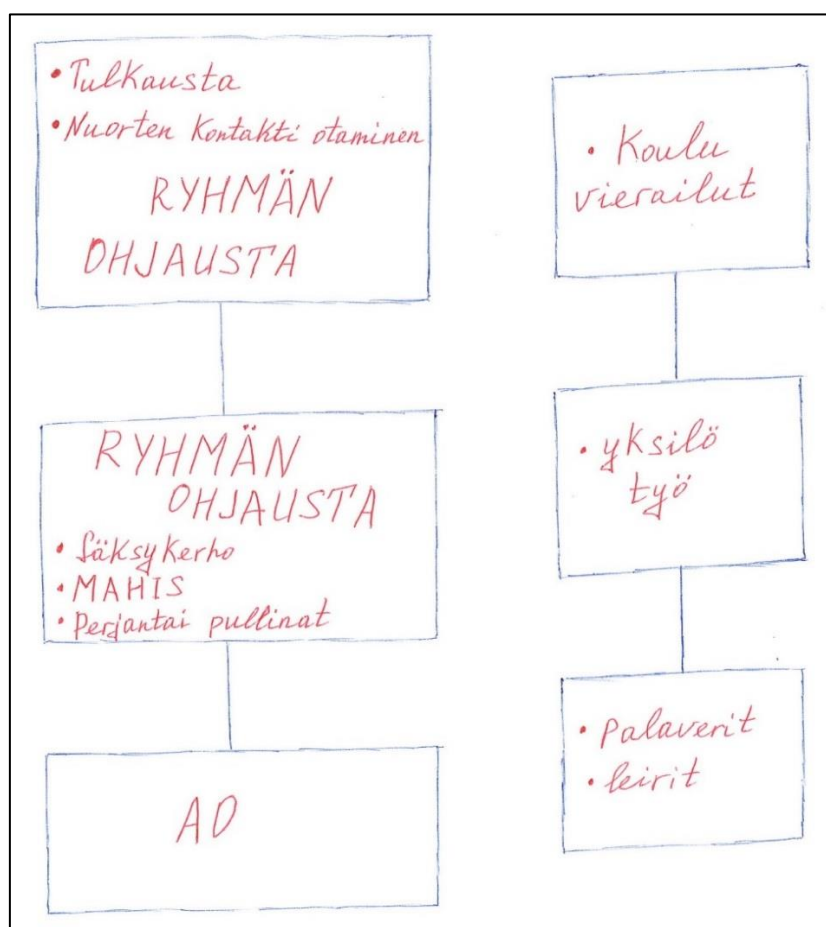 • Tulkausta
• Nuorten Kontakti otaminen
RYHMÄN
OHJAUSTA
RYHMÄN
OHJAUSTA
• Säksykerho
• MAHIS
• Perjantai pullinat
AD
• Koulu
vierailut
• yksilö
työ
• Palaverit
• leirit